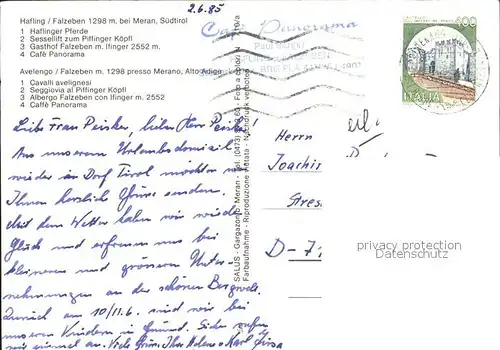 2.6.85
Hafling / Falzeben 1298 m. bei Meran, Südtirol
1 Haflinger Pferde
2 Sessellift zum Piffinger Köpfl
3 Gasthof Falzeben m. Ifinger 2552 m.
4 Cafè Panorama
Avelengo / Falzeben m. 1298 presso Merano, Alto Adige
1 Cavalli avelignesi
2 Seggiovia al Piffinger Köpfl
3 Albergo Falzeben con Ifinger m. 2552
4 Caffè Panorama
Café Panorama
600
ITALIA
Liebe Frau Peisker, lieber Herr
Aus unserem Urlaubsdomizil
wieder in Dorf Tirol möchten wir
Ihnen herzliche Grüße senden.
Mit dem Wetter haben wir wieder
Glück und erfreuen uns bei
kleineren und grösseren Unter-
nehmungen an der schönen Bergwelt.
Zurück am 10/11.6. sind wir bei
unseren Kindern in Gmünd. Sicher rufen
wir einmal an. Viele Grüße Ihre Helene + Karl
SALUS - Gargazon bei Meran - Tel. (0473)
Farbaufnahme - Riproduzione vietata - Nachdruck verboten
Herrn
Joachim
Stres
D-7
privacy protection
Datenschutz